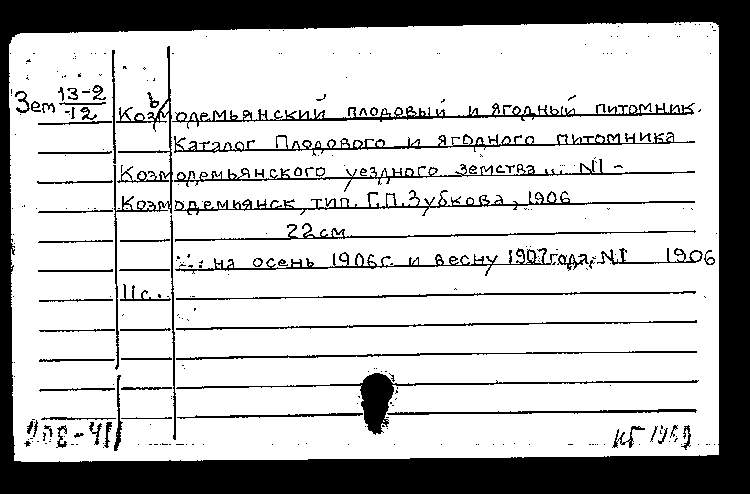 Зем 13-2
-12
Козьмодемьянский плодовый и ягодный питомник.
Каталог Плодового и ягодного питомника
Козмодемьянского уездного земства... N1 -
Козмодемьянск, тип. Г.П.Зубкова, 1906
22см
...: на осень 1906г. и весну 1907 года, N1 1906
11с.
208-41
КГ 1969